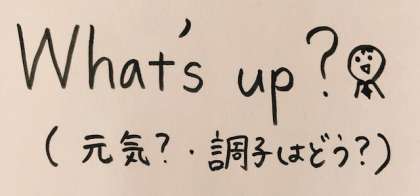 What's up?
(元気?・調子はどう?)